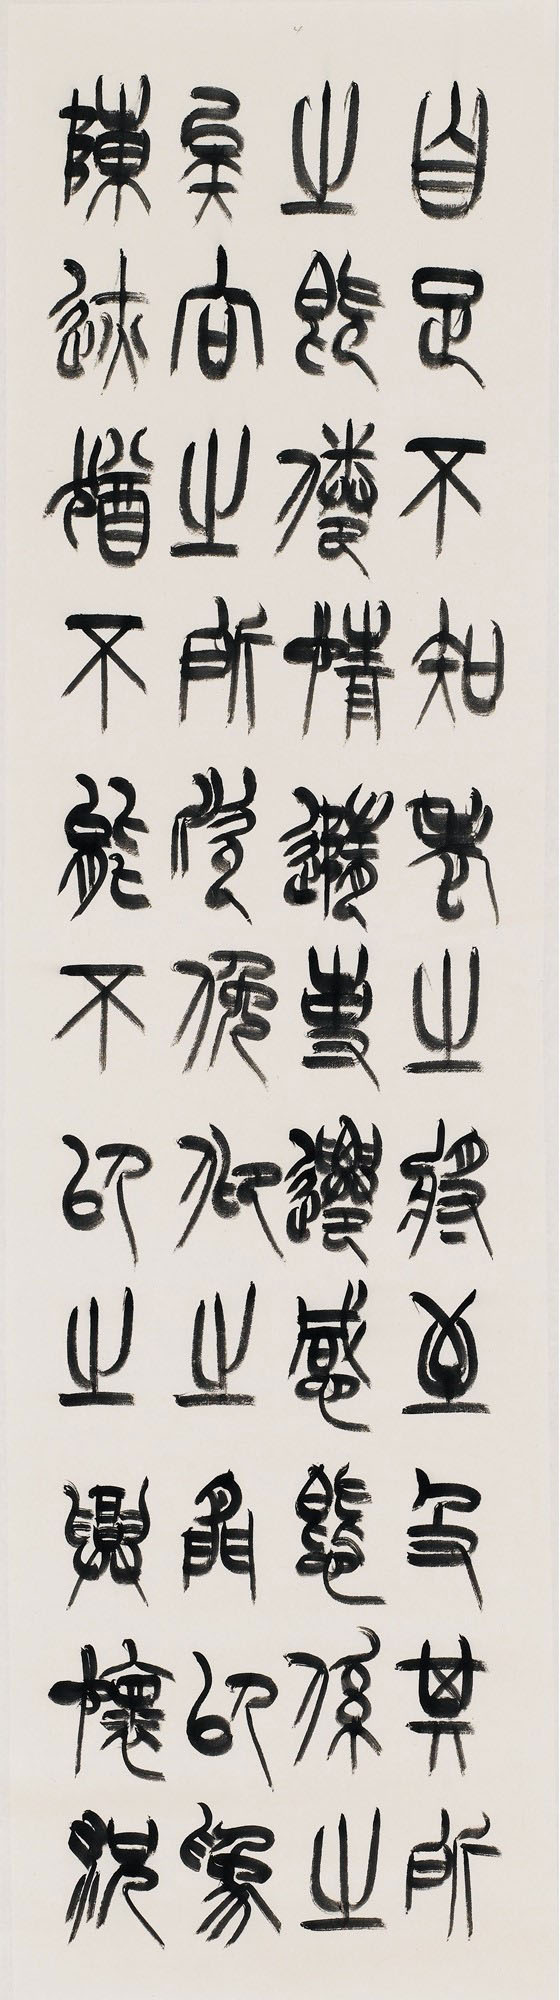 自足不知老之將至及其所
之既倦情隨事遷感慨係之
矣向之所欣俛仰之間以為
陳迹猶不能不以之興懷況